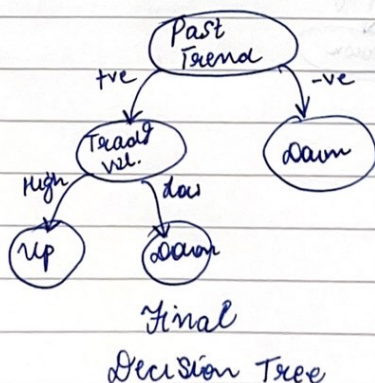 Past
Trend
+ve
-ve
Trad^g
vol.
Down
High
Low
Up
Down
Final
Decision Tree